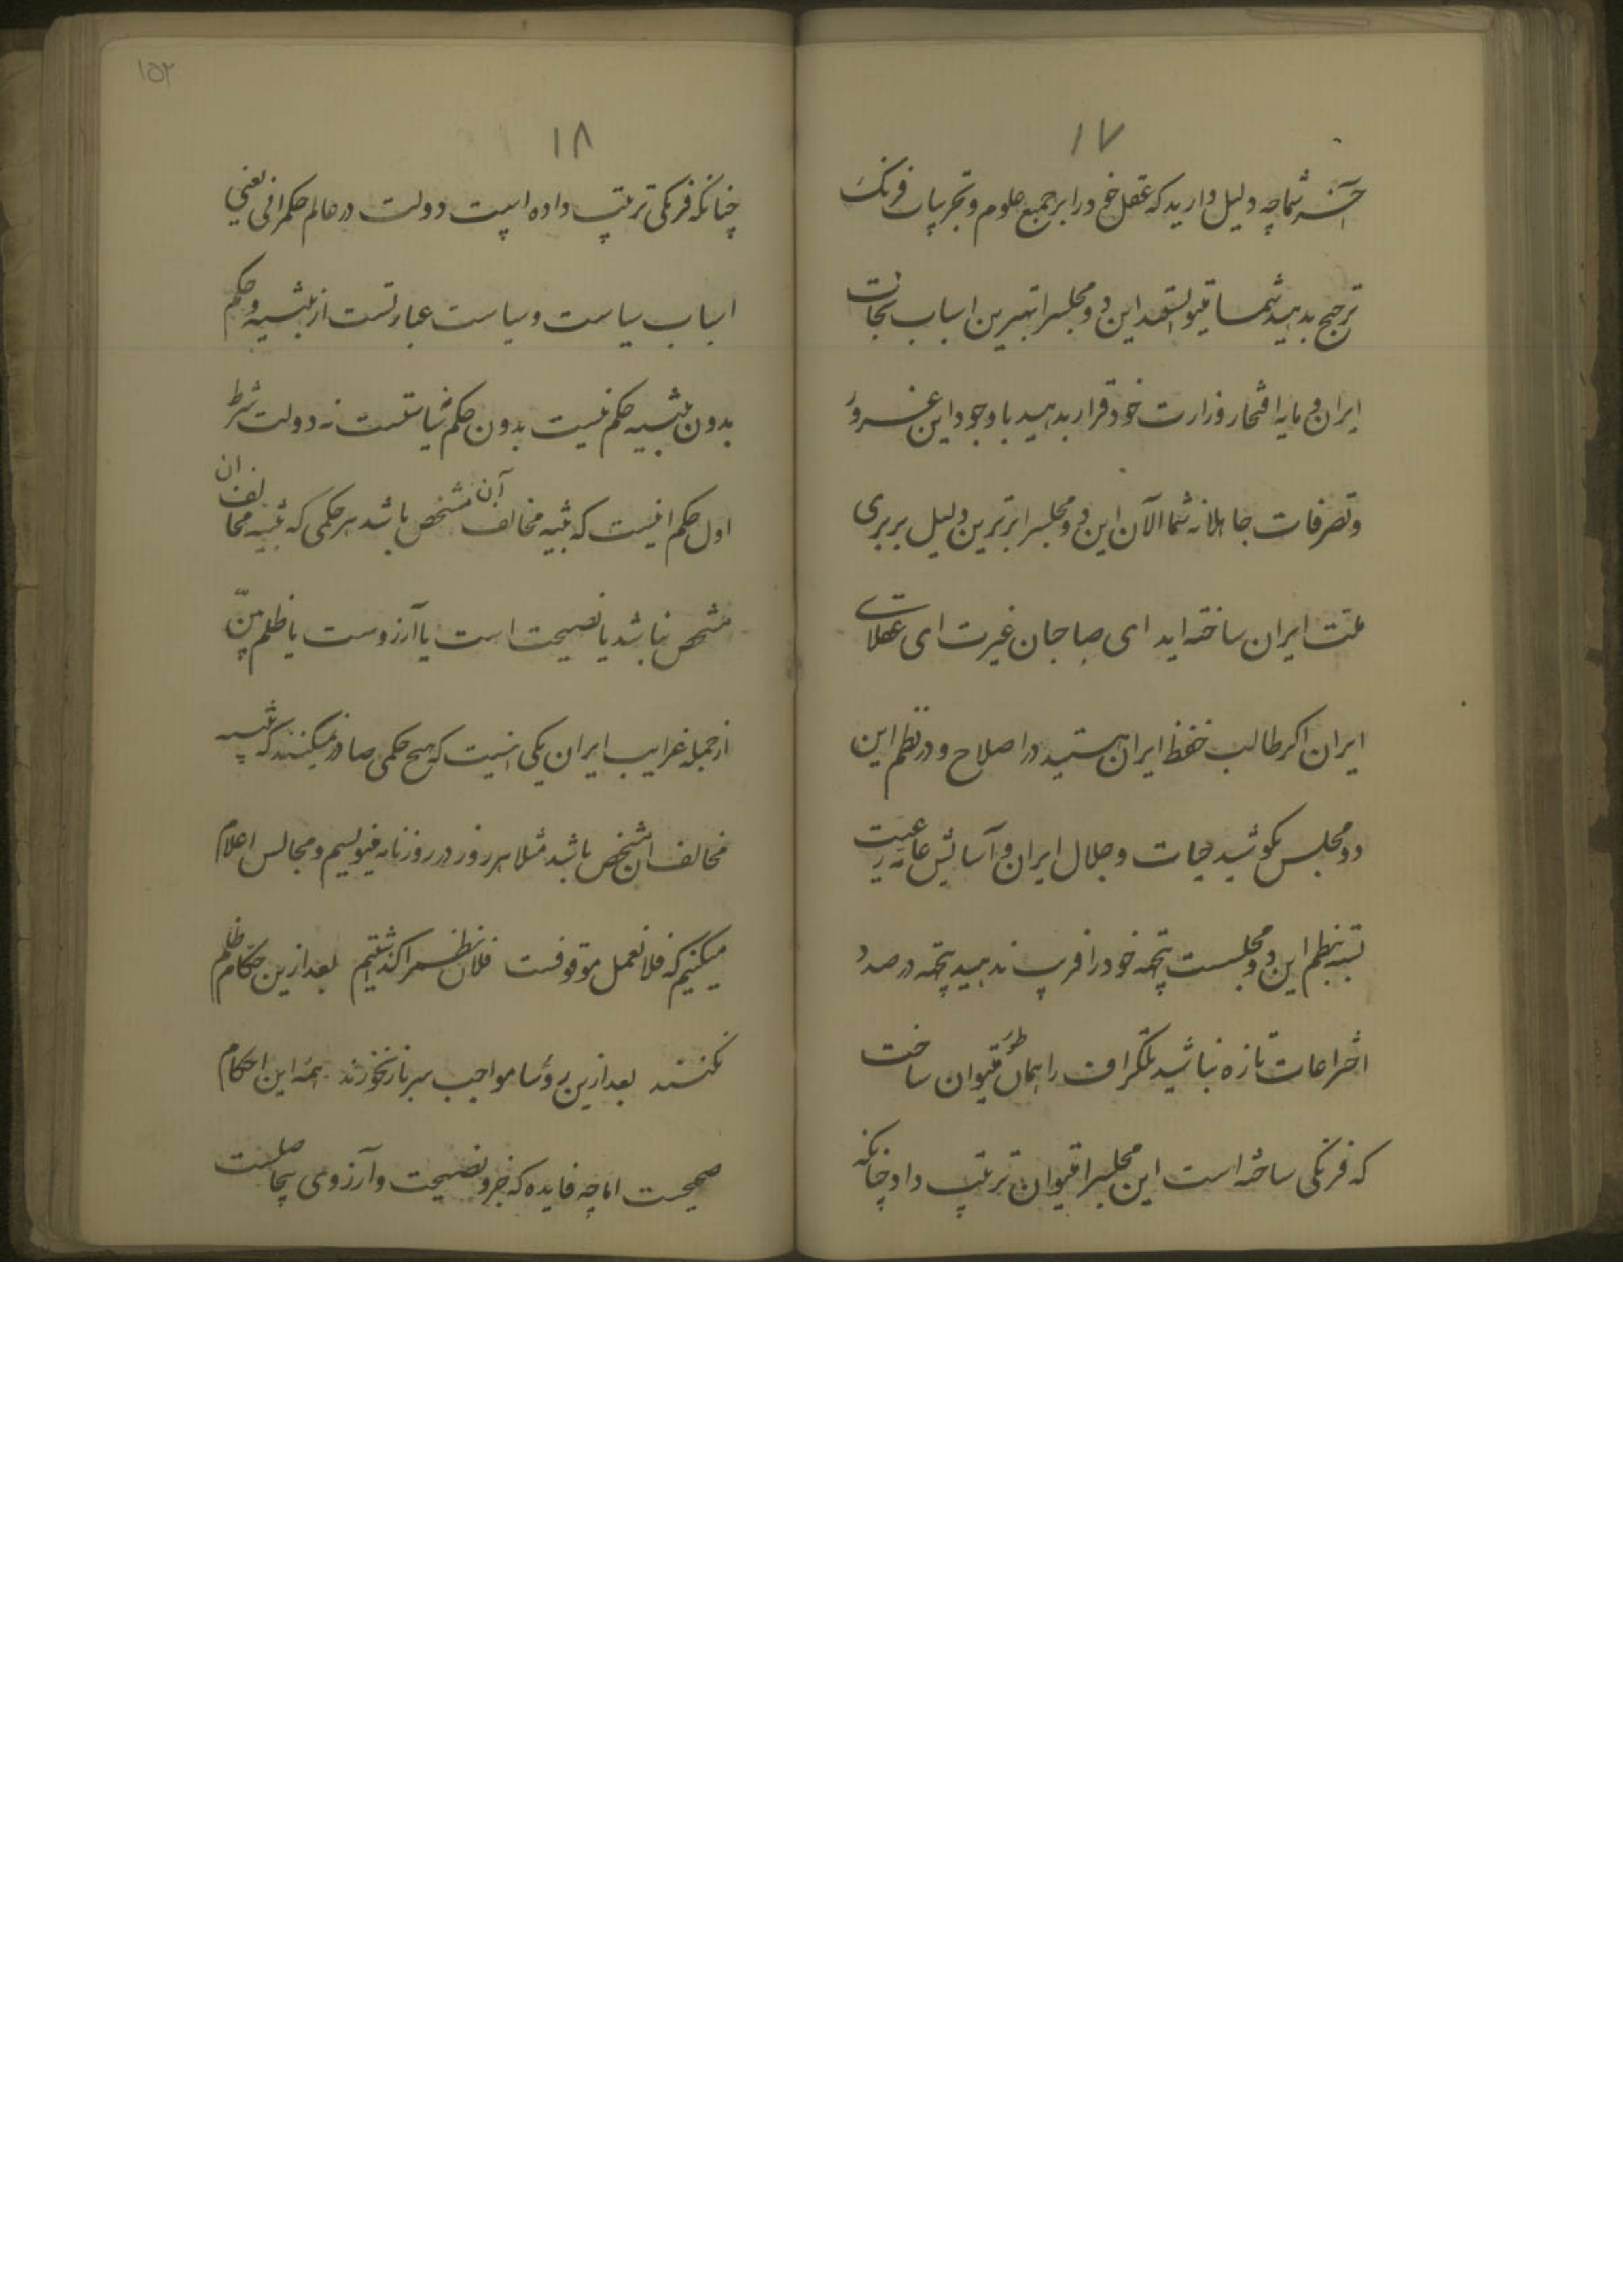 ۱۷
آخر شما چه دلیل دارید که عقل خود را بر جمیع علوم و تجربیات فرنگ
ترجیح بدهید شما میتوانستید این دو مجلس را بهترین اسباب نجات
ایران و مایه افتخار وزارت خود قرار بدهید با وجود این غرور
و تصرفات جاهلانه شما الآن این دو مجلس را برترین دلیل بربری
ملت ایران ساخته‌اید ای صاحبان غیرت ای عقلای
ایران اکر طالب حفظ ایران هستید در اصلاح و در نظم این
دو مجلس بکوشید حیات و جلال ایران و آسایش عامه رعیت
بسته بنظم این دو مجلسست خود را فریب ندهید در صدد
اختراعات تازه نباشید تلکراف را همان طور میتوان ساخت
که فرنکی ساخته است این مجلس را میتوان ترتیب داد چنانکه
۱۵۲
۱۸
چنانکه فرنکی ترتیب داده است دولت در عالم حکمرانی یعنی
اسباب سیاست و سیاست عبارتست از تنبیه و حکم
بدون تنبیه حکم نیست بدون حکم نه سیاستست نه دولت شرط
اول حکم اینست که تنبیه مخالف آن مشخص باشد هر حکمی که تنبیه مخالف ان
مشخص نباشد یا نصیحت است یا آرزوست یا ظلم بیّن
از جمله غرایب ایران یکی اینست که هیچ حکمی صادر نمیکنند که تنبیه
مخالف ان مشخص باشد مثلا هر روز در روزنامه مینویسیم و مجالس اعلام
میکنیم که فلان عمل موقوفست فلان نظم را کذاشتیم بعد ازین حکام ظلم
نکنند بعد ازین رؤسا مواجب سرباز نخورند همه این احکام
صحیحست اما چه فایده که جز و نصیحت و آرزوی بیحاصلست